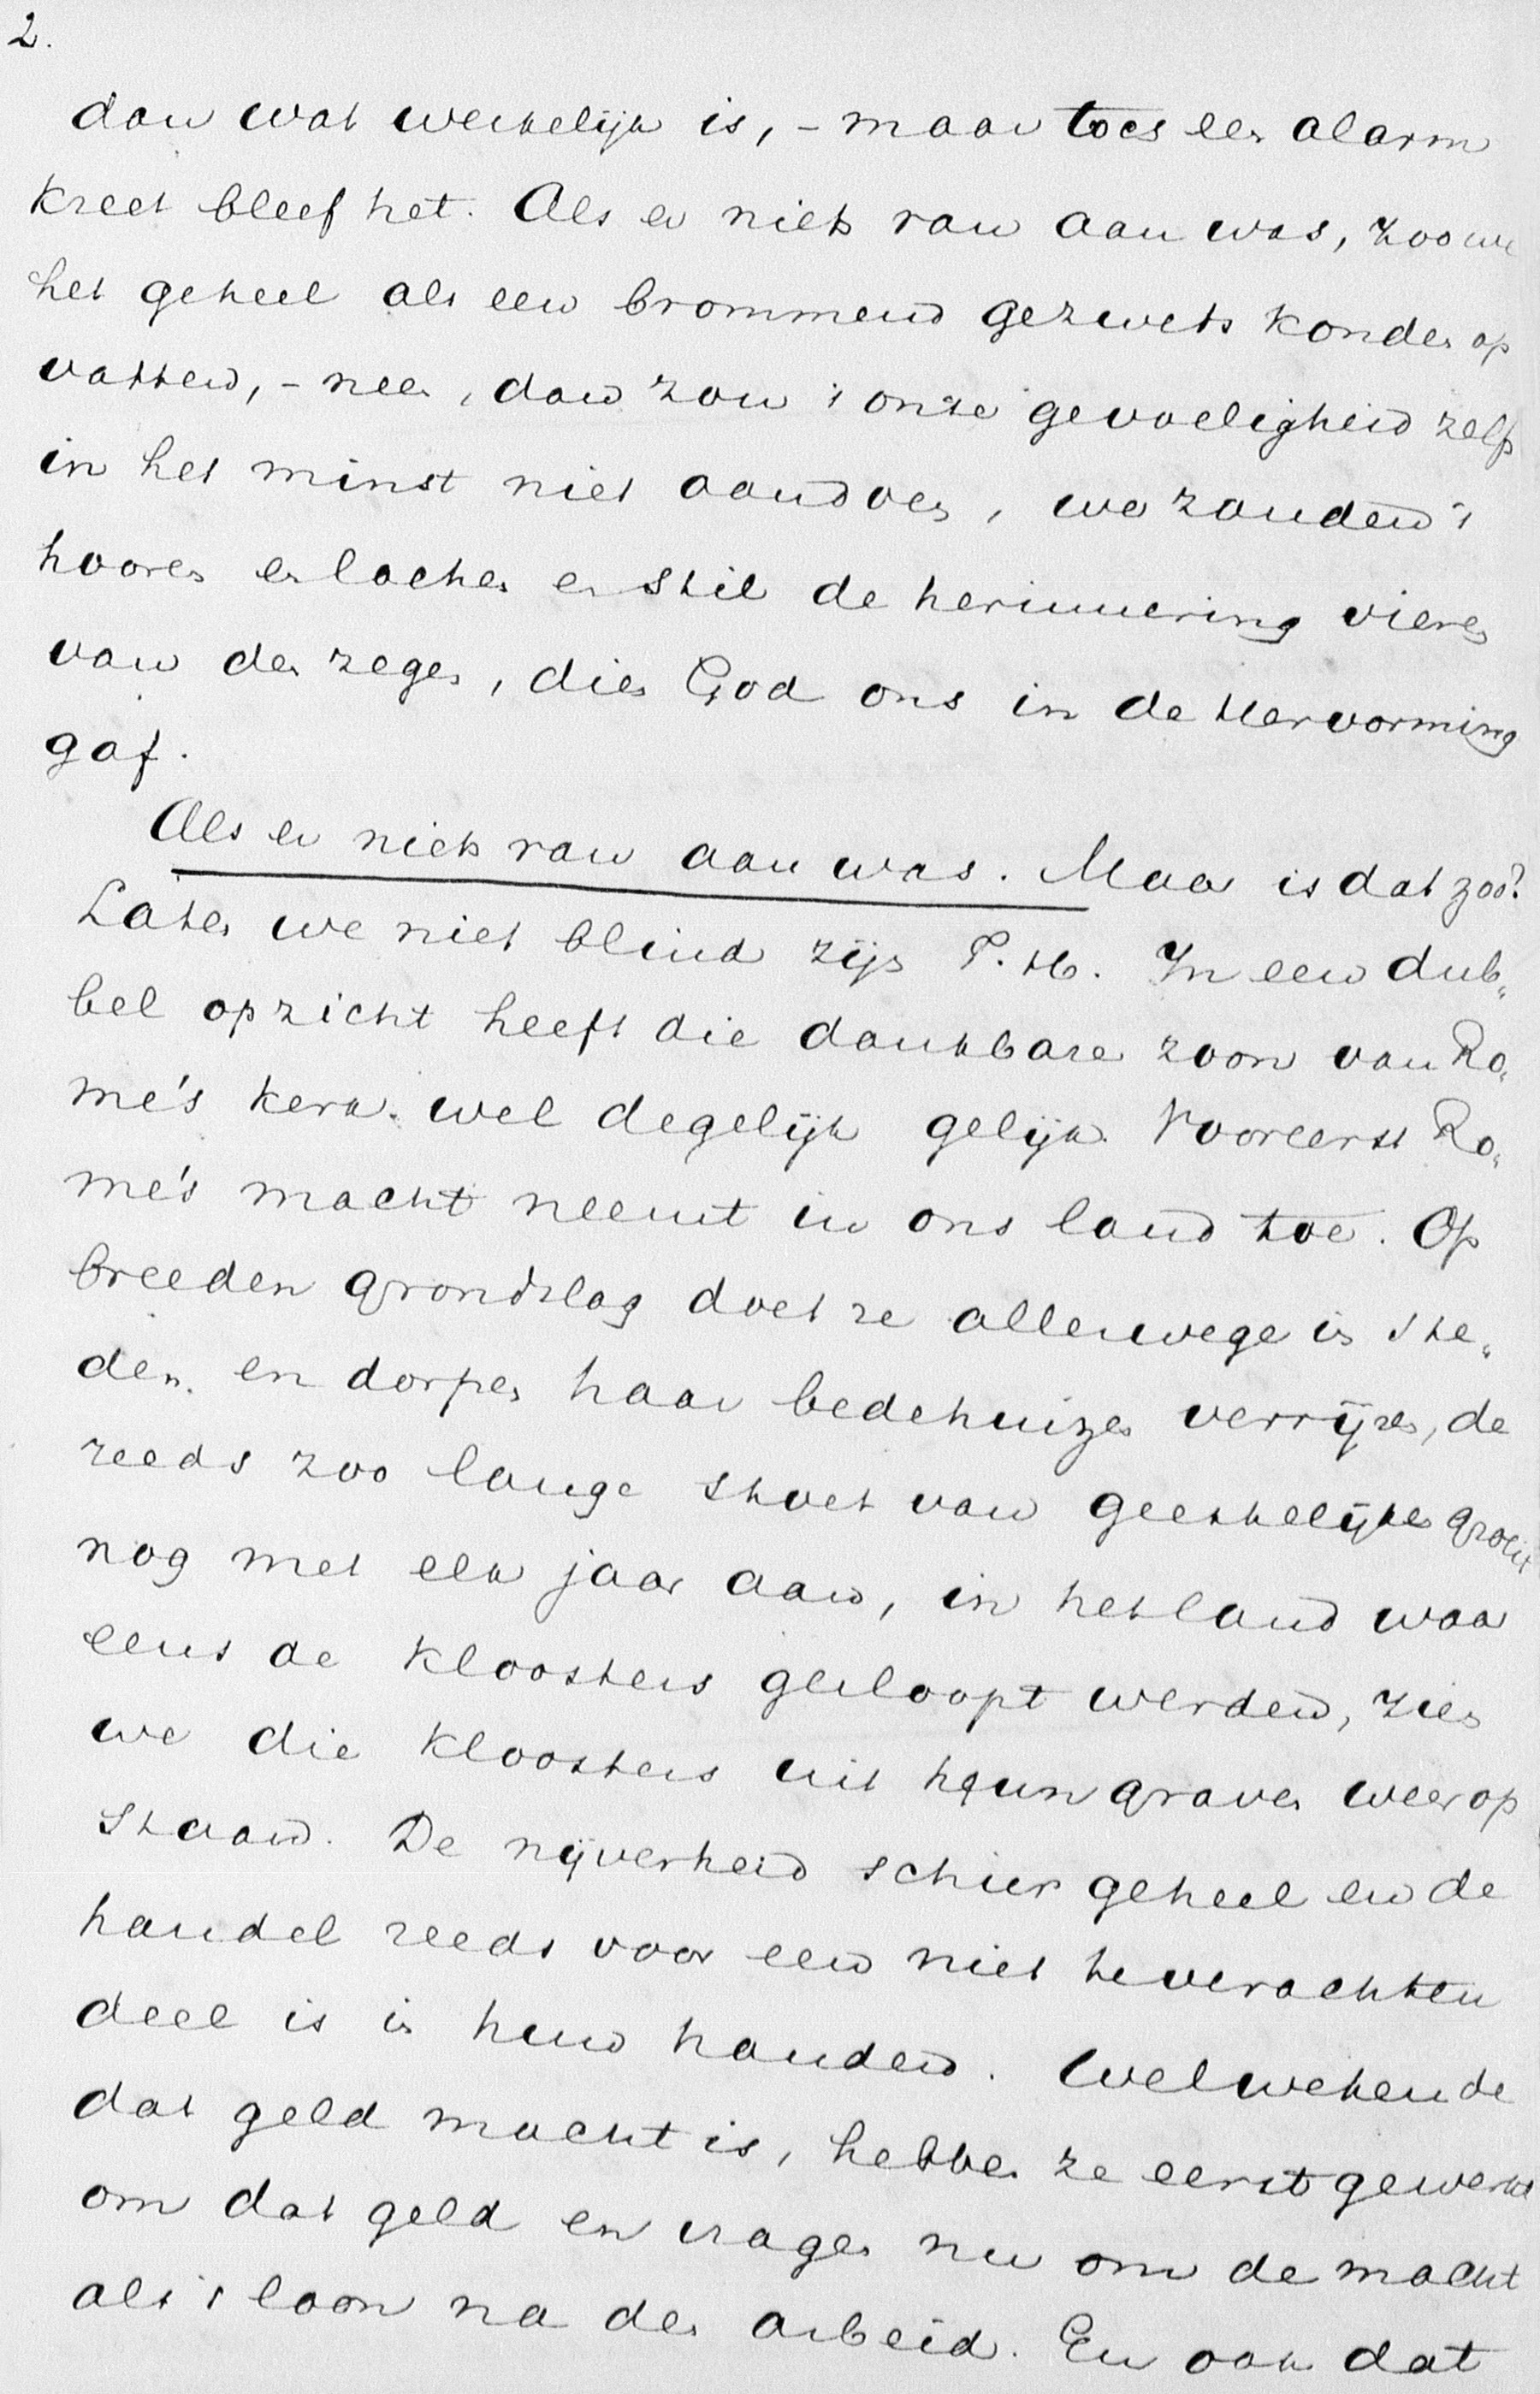 2.
dan wat werkelijk is, - maar toch een alarm
kreet bleef het. Als er niets van aan was, zoo we
het geheel als een brommend gezwets konden op
vatten, - neen, dan zou 't onze gevoeligheid zelfs
in het minst niet aandoen, we zouden 't
hooren en lachen en stil de herinnering vieren
van den zegen, dien God ons in de Hervorming
gaf.
Als er niets van aan was. Maar is dat zoo?
Laten we niet blind zijn T. H. In een dub„
bel opzicht heeft die dankbare zoon van Ro„
me's kerk wel degelijk gelijk. Vooreerst Ro„
me's macht neemt in ons land toe. Op
breeden grondslag doet ze allerwege in ste„
den en dorpen haar bedehuizen verrijzen, de
reeds zoo lange stoet van geestelijken groeit
nog met elk jaar aan, in het land waar
eens de kloosters gesloopt werden, zien
we die kloosters uit hun graven weer op
staan. De nijverheid schier geheel en de
handel reeds voor een niet te verachten
deel is in hun handen. Welwetende
dat geld macht is, hebben ze eerst gewerkt
om dat geld en vragen nu om de macht
als 't loon na den arbeid. En ook dat